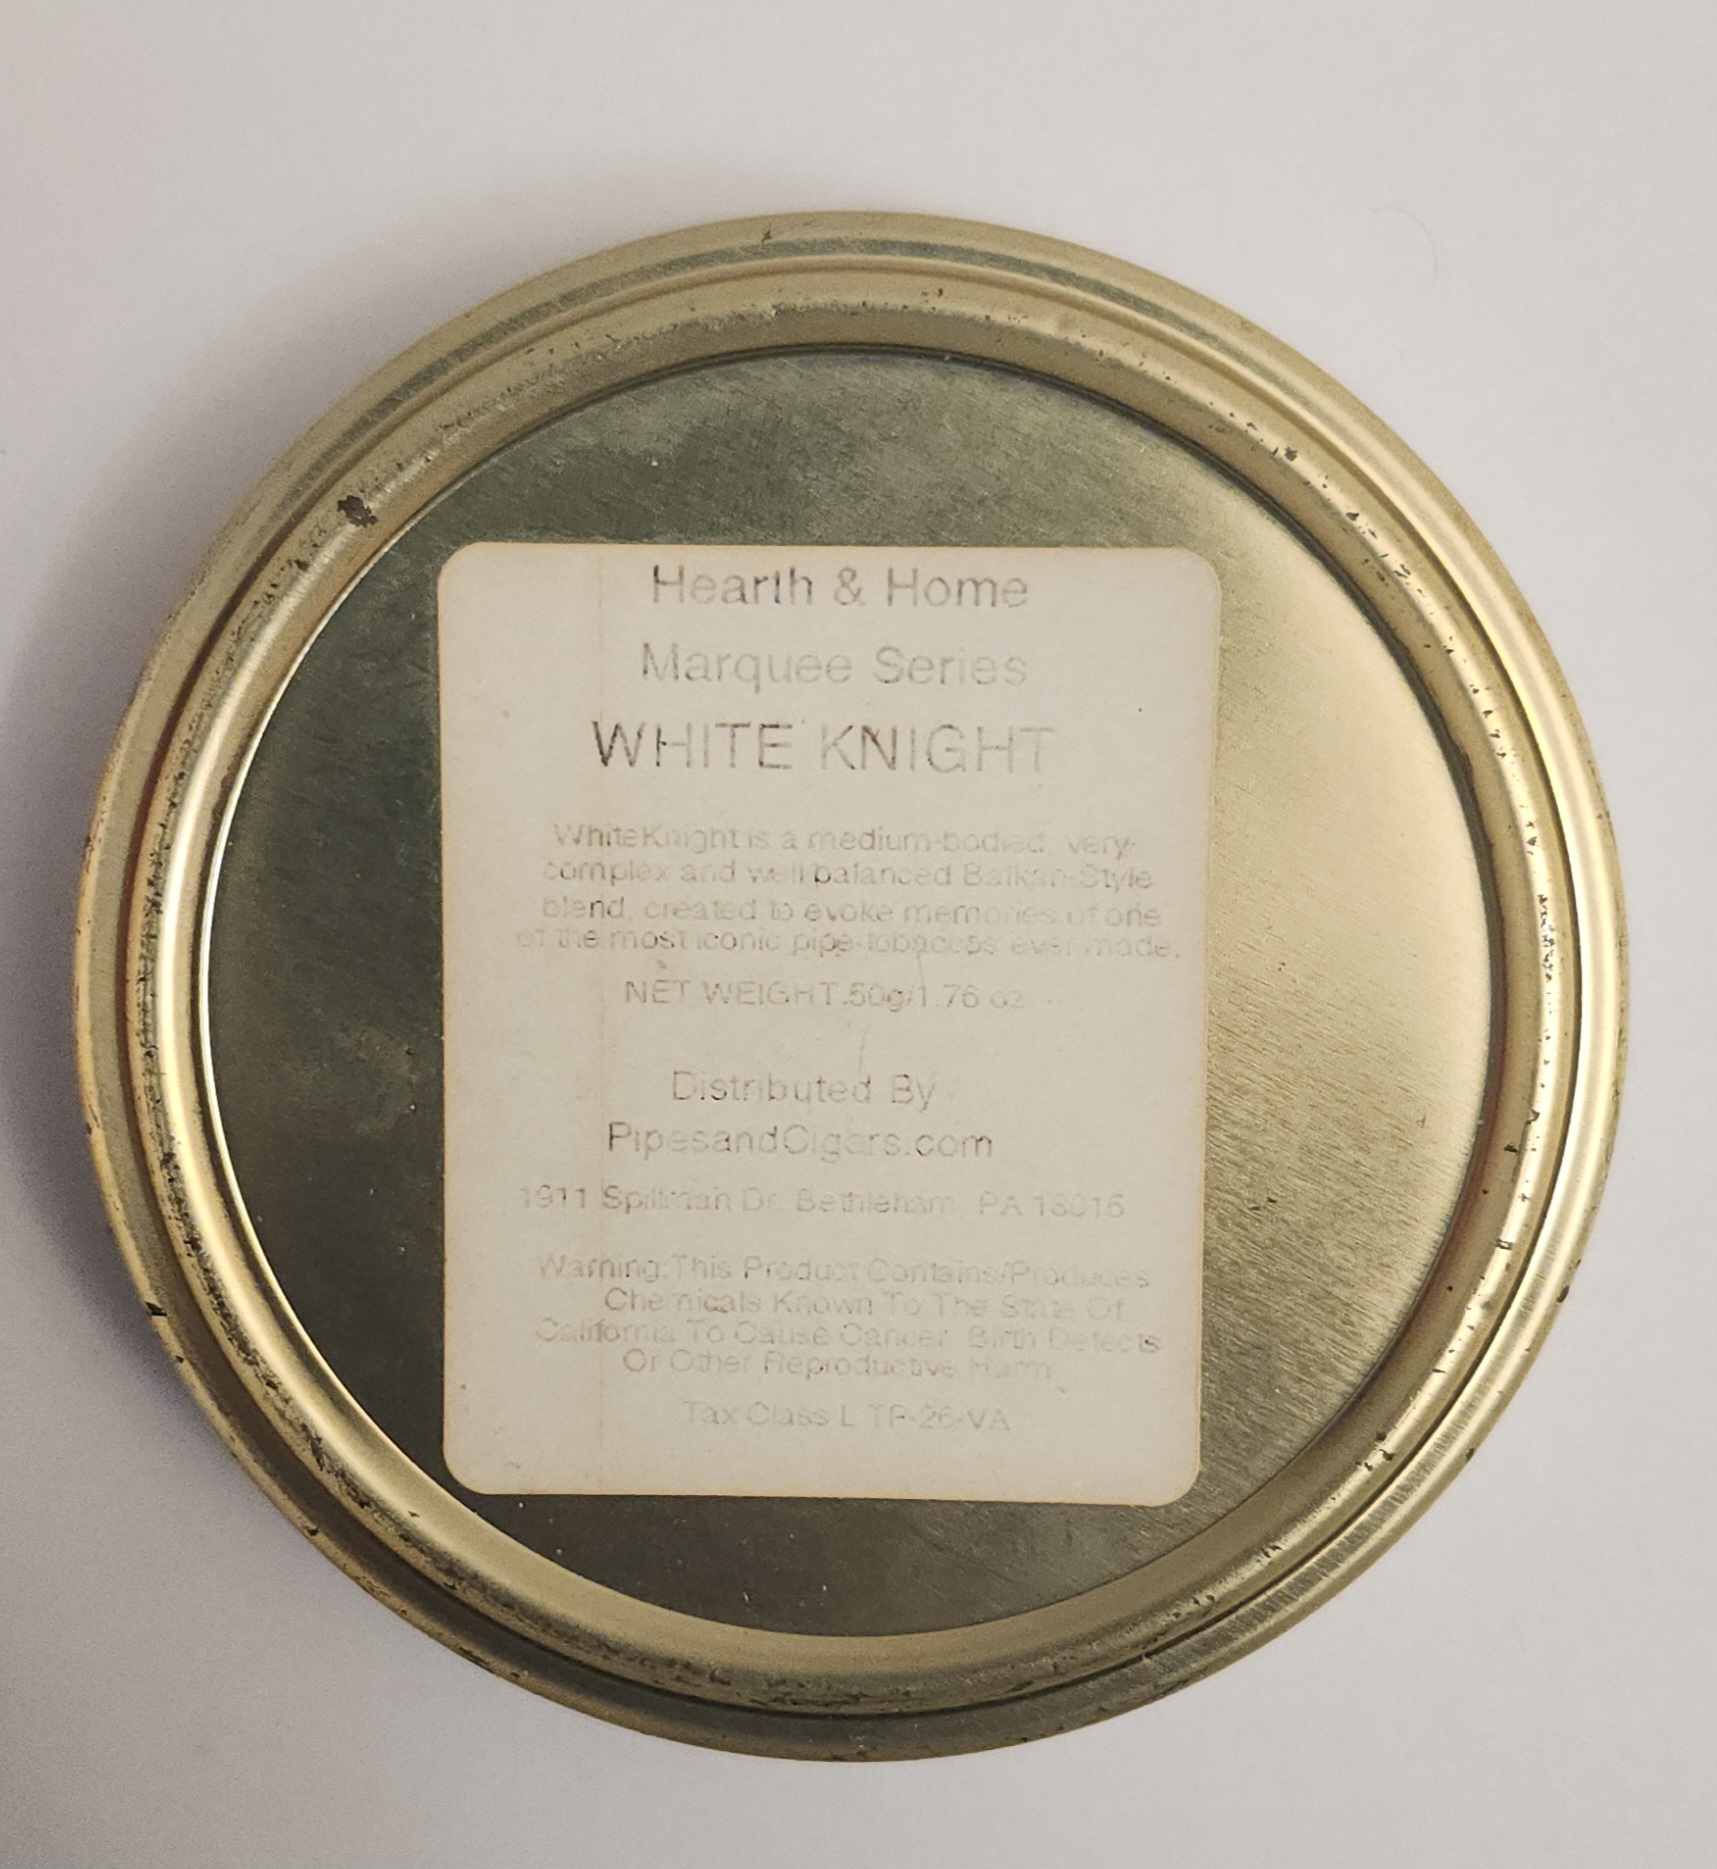 Hearth & Home
Marquee Series
WHITE KNIGHT
WhiteKnight is a medium-bodied, very-
complex and well balanced Balkan-Style
blend, created to evoke memories of one
of the most iconic pipe tobaccos ever made.
NET WEIGHT.50g/1.76 oz
Distributed By
PipesandCigars.com
1911 Spillman Dr. Bethleham, PA 18015
Warning:This Product Contains/Produces
Chemicals Known To The State Of
California To Cause Cancer, Birth Defects
Or Other Reproductive Harm
Tax Class L TP-26-VA